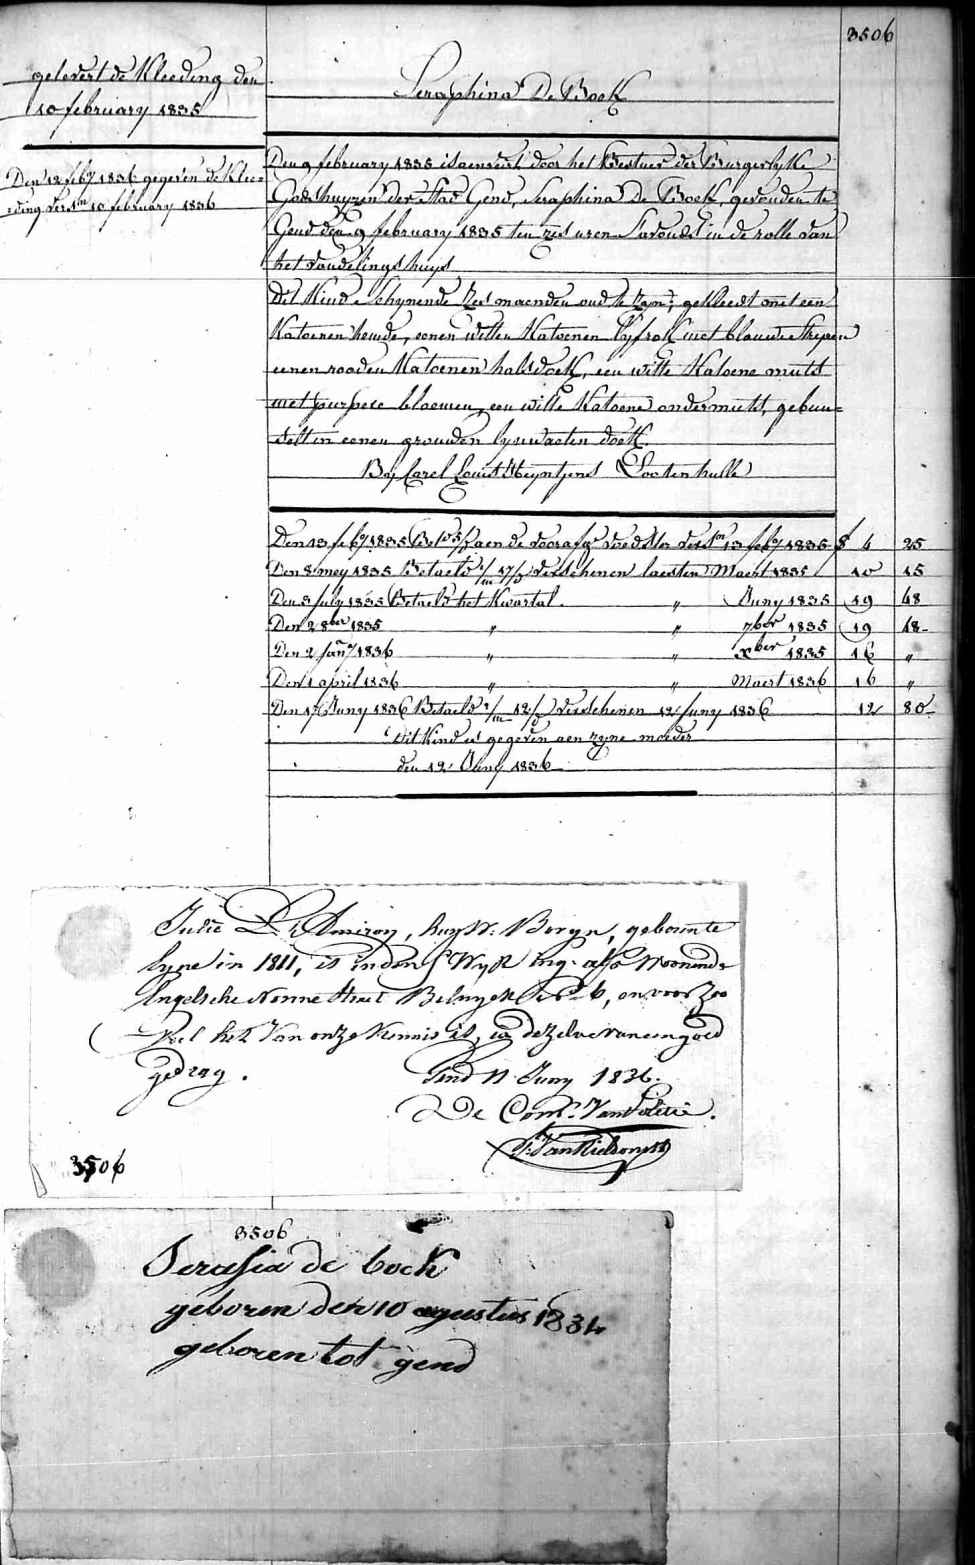 3506
gelevert de Kleeding den
10 february 1835
Seraphina De Bock
Den 12 feby 1836 gegeven de Klee=
=ding versn 10 february 1836
Den 9 february 1835 is aenveert door het Bestuur der Burgerlyke
Godshuyzen der Stad Gend, Seraphina De Bock, gevonden te
Gend den 9 february 1835 ten zes uren s'avonds in de rolle van
het vondelingshuys
Dit Kind schynende zes maenden oud te zyn; gekleedt met een
Katoenen hemde, eenen witten Katoenen lyfrok met blauwe strepen
eenen rooden Katoenen halsdoek, een witte Katoene muts
met purpere bloemen, een witte Katoene ondermuts, gebun=
delt in eenen grouwden lynwaeten doek.
By Carel Louis Heyntjens Lootenhulle
Den 13 feby 1835 aen de voedster 13 feby 1835 4 25
Den 8 mey 1835 Betaeld 17/ verschenen laesten Maert 1835 10 15
Den 3 July 1835 Betaeld het Kwartal. " Juny 1835 19 48
Den 2 8ber 1835 " " 7ber 1835 19 48
Den 2 Jany 1836 " " xber 1835 16 "
Den 1 april 1836 " " Maert 1836 16 "
Den 17 Juny 1836 Betaeld 12/ verschenen 12 Juny 1836 12 80
dit Kind is gegeven aen zyne moeder
den 12 Juny 1836
Julie De , huysv: Boryn, geboren te
in 1811, is in den Wyk woonende
Engelsche Nonne straet No 6, en voor zoo
veel het van onze Kennis is, is dezelve van een goed
gedrag.
Gend 11 Juny 1836.
De Coms. Van Politie.
3506
3506
Seraesia de bock
geboren den 10 agustus 1834
geboren tot gend